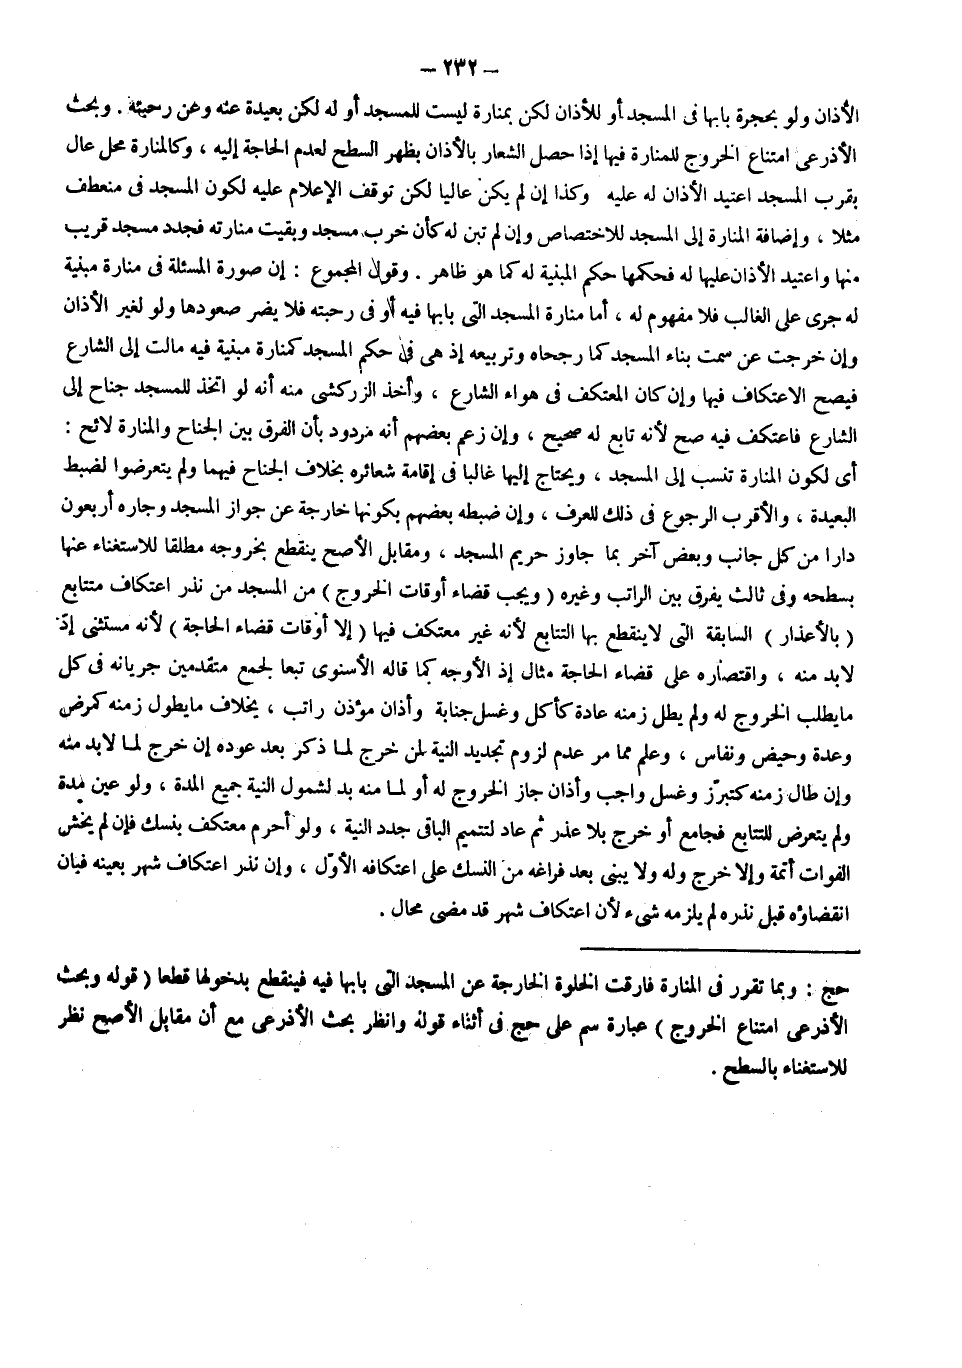 — ٢٣٢ —
الأذان ولو بحجرة بابها فى المسجد أو للأذان لكن بمنارة ليست للمسجد أو له لكن بعيدة عنه وعن رحبته . وبحث
الأذرعى امتناع الخروج للمنارة فيها إذا حصل الشعار بالأذان بظهر السطح لعدم الحاجة إليه ، وكالمنارة محل عال
بقرب المسجد اعتيد الأذان له عليه وكذا إن لم يكن عاليا لكن توقف الإعلام عليه لكون المسجد فى منعطف
مثلا ، وإضافة المنارة إلى المسجد للاختصاص وإن لم تبن له كأن خرب مسجد وبقيت منارته فجدد مسجد قريب
منها واعتيد الأذان عليها له فحكمها حكم المبنية له كما هو ظاهر . وقول المجموع : إن صورة المسئلة فى منارة مبنية
له جرى على الغالب فلا مفهوم له ، أما منارة المسجد التى بابها فيه أو فى رحبته فلا يضر صعودها ولو لغير الأذان
وإن خرجت عن سمت بناء المسجد كما رجحاه وتربيعه إذ هى فى حكم المسجد كمنارة مبنية فيه مالت إلى الشارع
فيصح الاعتكاف فيها وإن كان المعتكف فى هواء الشارع ، وأخذ الزركشى منه أنه لو اتخذ للمسجد جناح إلى
الشارع فاعتكف فيه صح لأنه تابع له صحيح ، وإن زعم بعضهم أنه مردود بأن الفرق بين الجناح والمنارة لائح :
أى لكون المنارة تنسب إلى المسجد ، ويحتاج إليها غالبا فى إقامة شعائره بخلاف الجناح فيهما ولم يتعرضوا لضبط
البعيدة ، والأقرب الرجوع فى ذلك للعرف ، وإن ضبطه بعضهم بكونها خارجة عن جواز المسجد وجاره أربعون
دارا من كل جانب وبعض آخر بما جاوز حريم المسجد ، ومقابل الأصح ينقطع بخروجه مطلقا للاستغناء عنها
بسطحه وفى ثالث يفرق بين الراتب وغيره ( ويجب قضاء أوقات الخروج ) من المسجد من نذر اعتكاف متتابع
( بالأعذار ) السابقة التى لاينقطع بها التتابع لأنه غير معتكف فيها ( إلا أوقات قضاء الحاجة ) لأنه مستثنى إذ
لابد منه ، واقتصاره على قضاء الحاجة مثال إذ الأوجه كما قاله الأسنوى تبعا لجمع متقدمين جريانه فى كل
مايطلب الخروج له ولم يطل زمنه عادة كأكل وغسل جنابة وأذان مؤذن راتب ، بخلاف مايطول زمنه كمرض
وعدة وحيض ونفاس ، وعلم مما مر عدم لزوم تجديد النية لمن خرج لما ذكر بعد عوده إن خرج لما لابد منه
وإن طال زمنه كتبرّز وغسل واجب وأذان جاز الخروج له أو لما منه بد لشمول النية جميع المدة ، ولو عين مدة
ولم يتعرض للتتابع فجامع أو خرج بلا عذر ثم عاد لتتميم الباقى جدد النية ، ولو أحرم معتكف بنسك فإن لم يخش
الفوات أتمه وإلا خرج وله ولا يبنى بعد فراغه من النسك على اعتكافه الأوّل ، وإن نذر اعتكاف شهر بعينه فبان
انقضاؤه قبل نذره لم يلزمه شىء لأن اعتكاف شهر قد مضى محال .
حج : وبما تقرر فى المنارة فارقت الخلوة الخارجة عن المسجد التى بابها فيه فينقطع بدخولها قطعا ( قوله وبحث
الأذرعى امتناع الخروج ) عبارة سم على حج فى أثناء قوله وانظر بحث الأذرعى مع أن مقابل الأصح نظر
للاستغناء بالسطح .